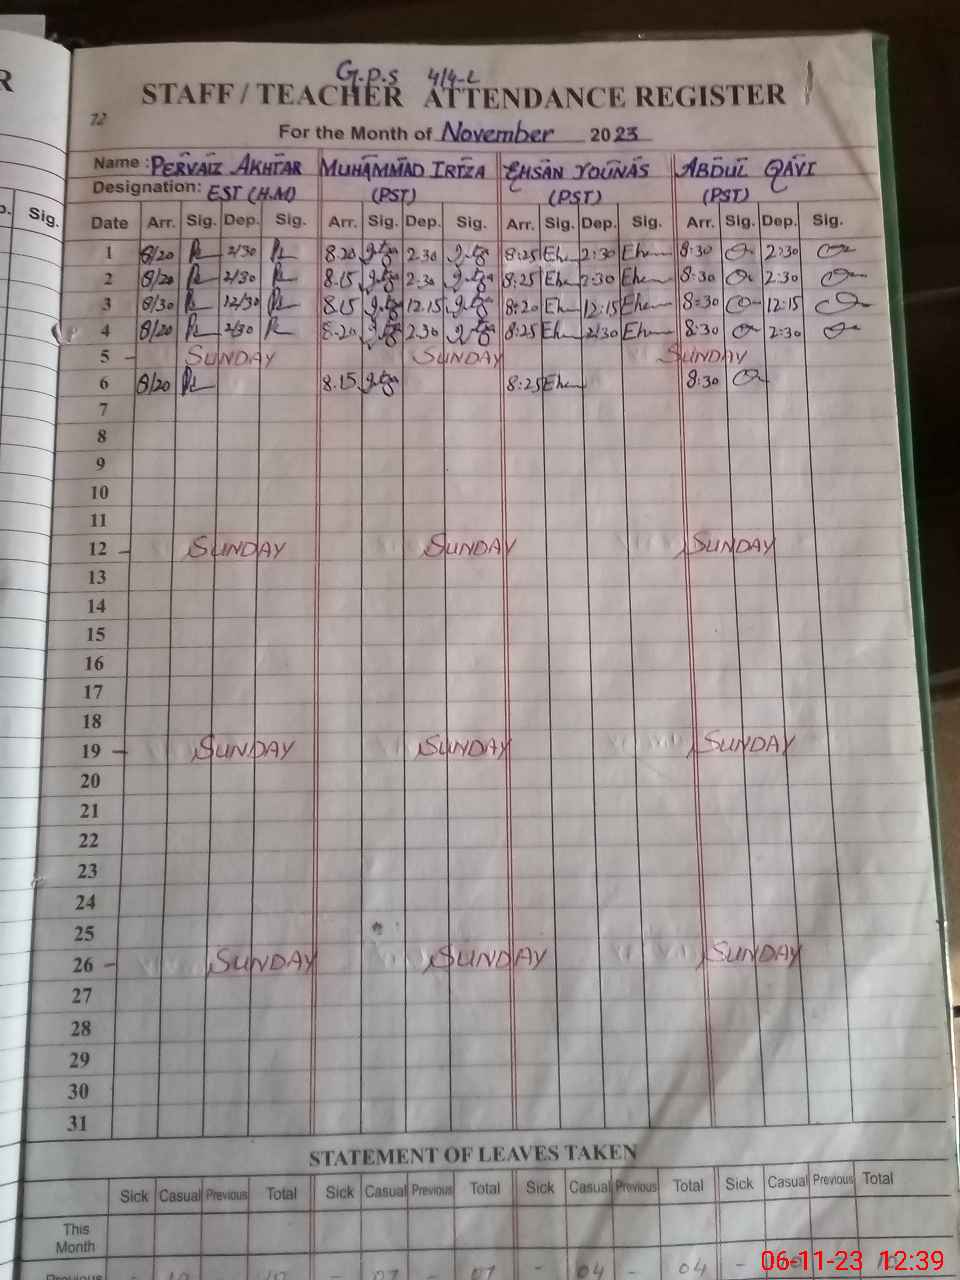 R
G.P.S 4/4-L
STAFF / TEACHER ATTENDANCE REGISTER
72
For the Month of November 2023
Name : PERVAIZ AKHTAR MUHAMMAD IRTZA EHSAN YOUNAS ABDUL QAVI
Designation: EST (H.M) (PST) (PST) (PST)
Sig.
Date Arr. Sig. Dep. Sig. Arr. Sig. Dep. Sig. Arr. Sig. Dep. Sig. Arr. Sig. Dep. Sig.
1 8/20 2/30 8.20 2.30 8:25 2:30 8:30 2:30
2 8/20 2/30 8.15 2.30 8:25 2:30 8:30 2:30
3 8/30 12/30 8.15 12.15 8:20 12:15 8:30 12:15
4 8/20 2/30 8.20 2.30 8:25 2/30 8:30 2:30
5 - SUNDAY SUNDAY SUNDAY
6 8/20 8.15 8:25 8:30
7
8
9
10
11
12 - SUNDAY SUNDAY SUNDAY
13
14
15
16
17
18
19 - SUNDAY SUNDAY SUNDAY
20
21
22
23
24
25
26 - SUNDAY SUNDAY SUNDAY
27
28
29
30
31
STATEMENT OF LEAVES TAKEN
Sick Casual Previous Total Sick Casual Previous Total Sick Casual Previous Total Sick Casual Previous Total
This
Month
Previous - - 07 - 07 - 04 - 04
06-11-23 12:39